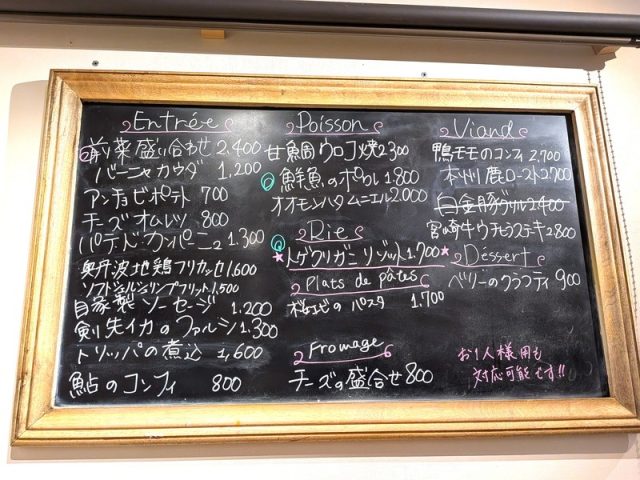 Entrée
前菜盛り合わせ 2.400
バーニャカウダ 1,200
アンチョビポテト 700
チーズオムレツ 800
パテドカンパーニュ 1.300
奥丹波地鶏フリカッセ 1,600
ソフトシェルシュリンプフリット 1,500
自家製ソーセージ 1.200
剣先イカのファルシ 1.300
トリッパの煮込 1,600
鮎のコンフィ 800
Poisson
甘鯛ウロコ焼 2300
鮮魚のポワレ 1.800
オオモンハタムニエル 2.000
Rie
トゲクリガニリゾット 1.700
Plats de pâtes
桜エビのパスタ 1.700
Fromage
チーズの盛合せ 800
Viand
鴨モモのコンフィ 2,700
本州鹿ロースト 2700
白金豚グリル 2400
宮崎牛ウチヒラステーキ 2800
Déssert
ベリーのクラフティ 900
お1人様用も
対応可能です!!